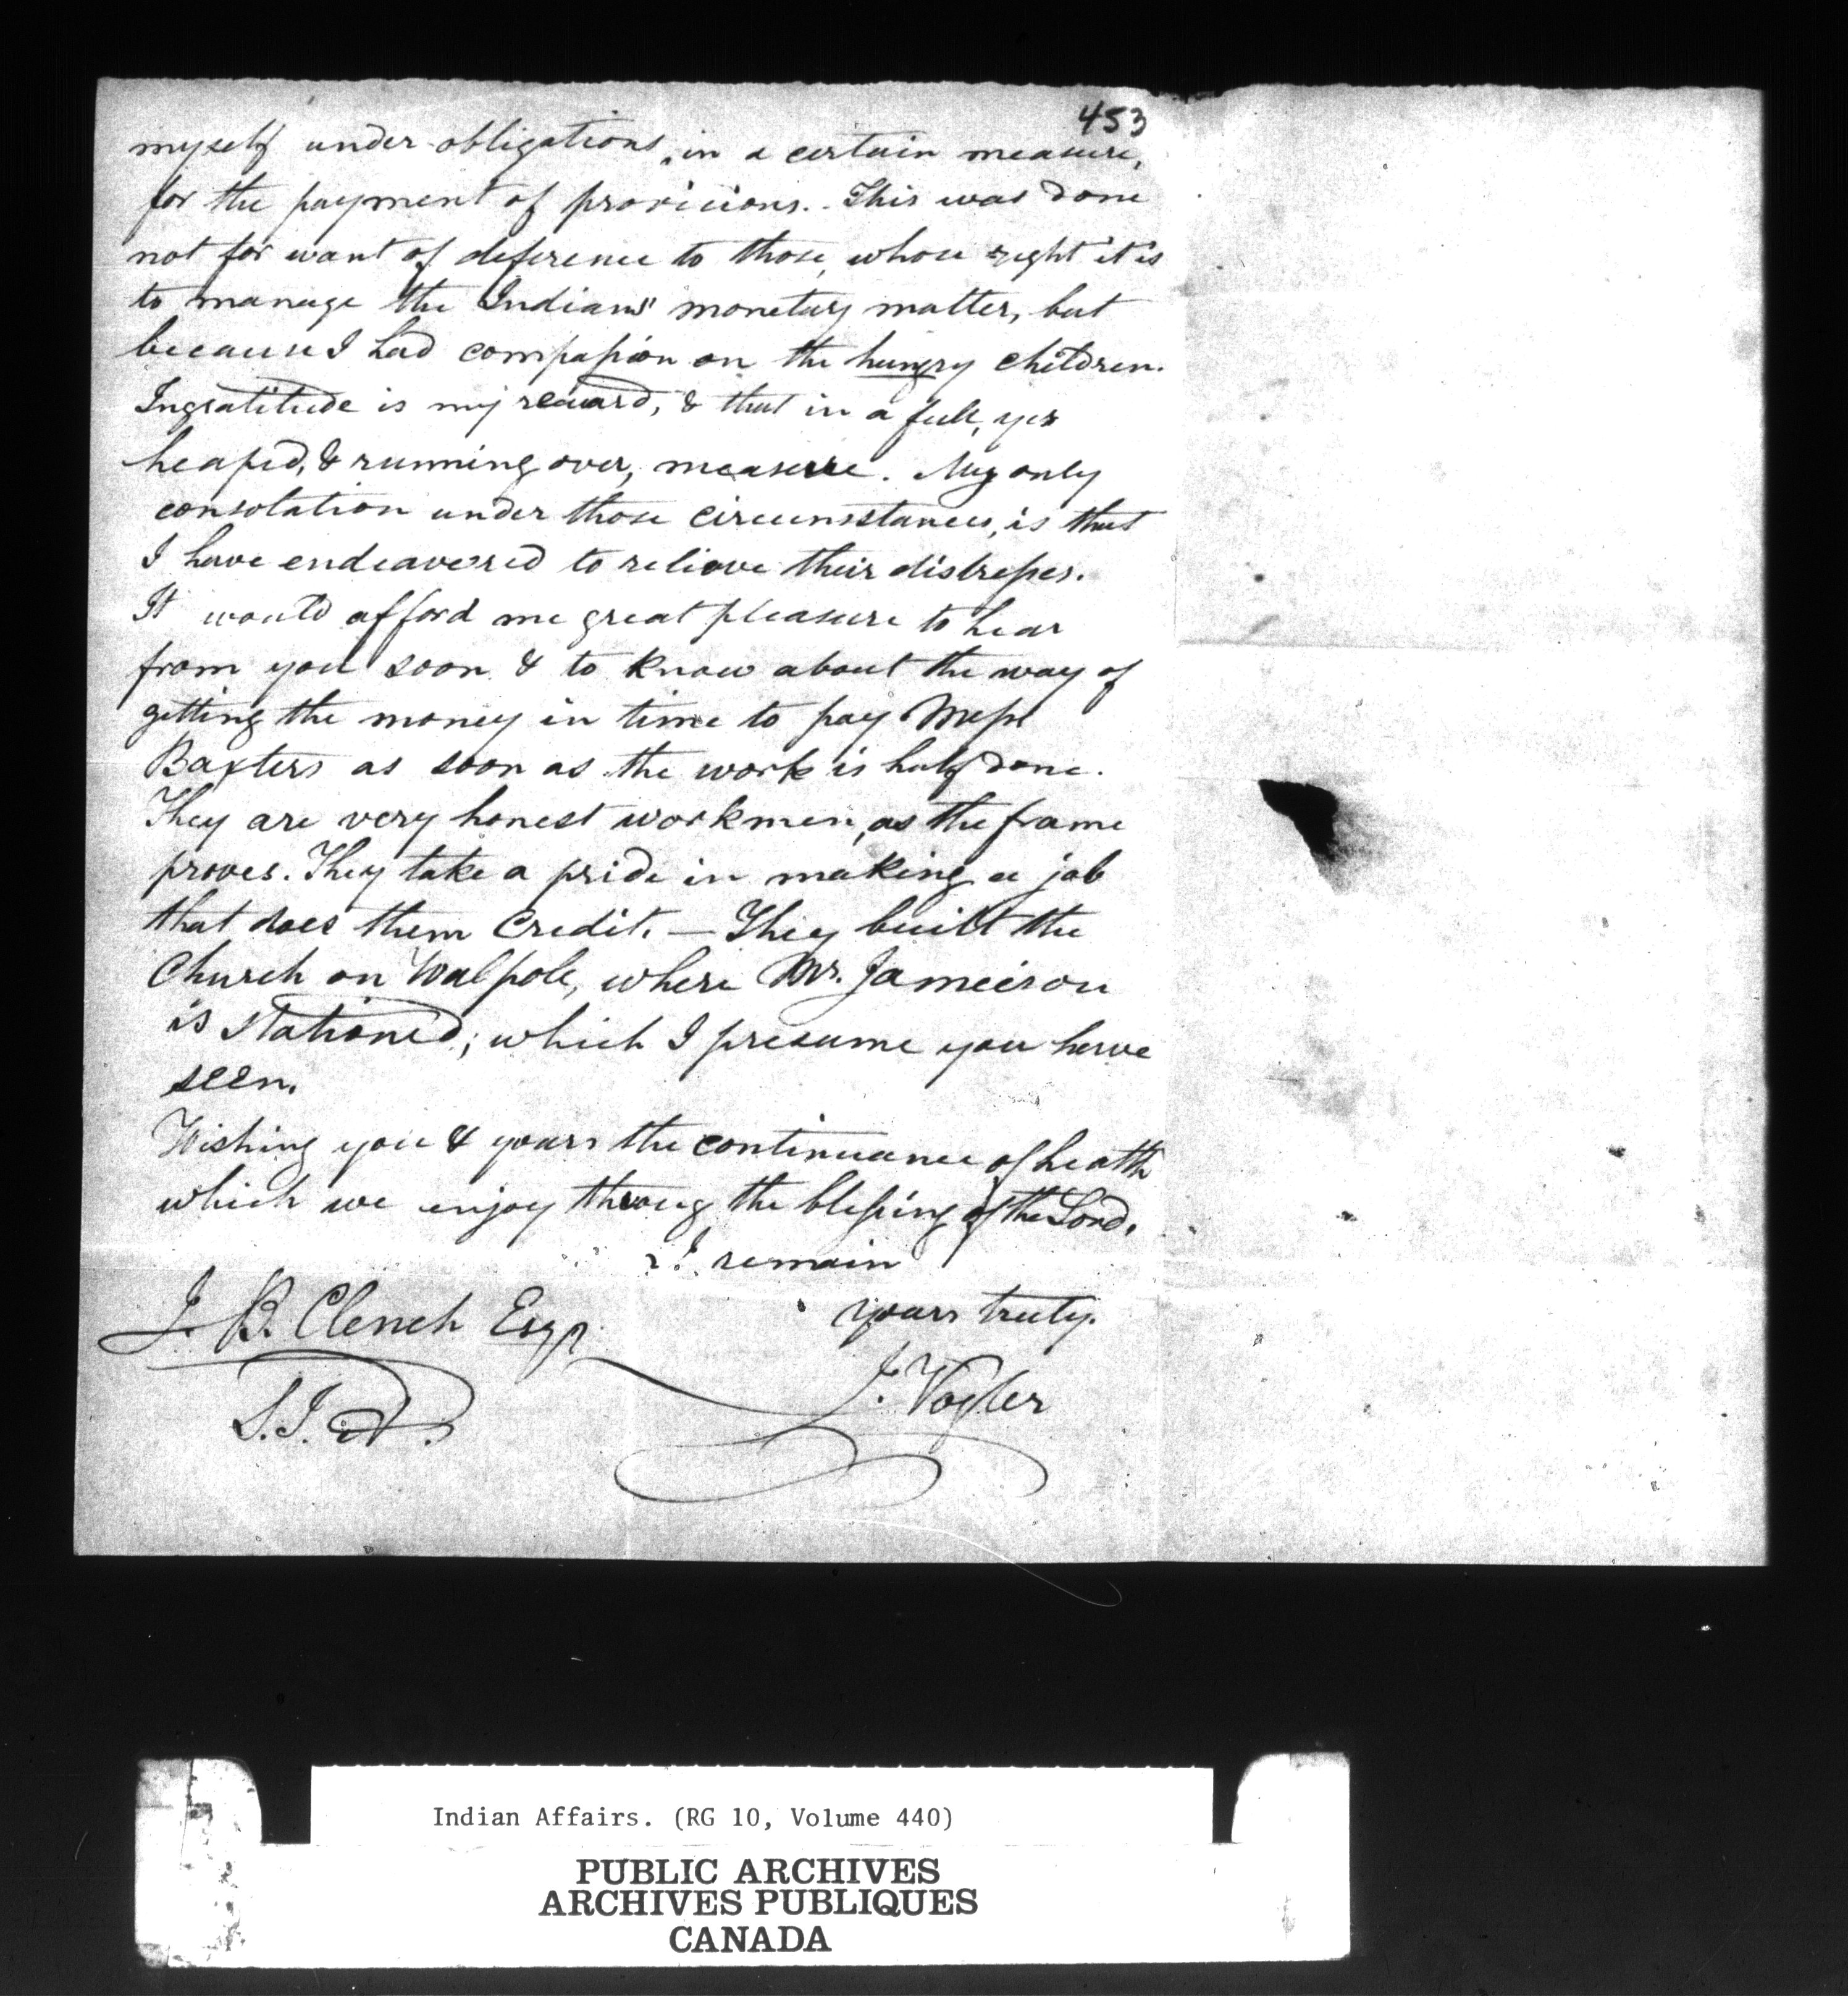 453
myself under obligations, in a certain measure,
for the payment of provicions. This was done
not for want of deference to those, whose right it is
to manage the Indians' monetary matter, but
because I had compassion on the hungry children.
Ingratitude is my reward, & that in a full, yes
heaped, & running over, measure. My only
consolation under those circumstances, is that
I have endeavored to relieve their distresses.
It would afford me great pleasure to hear
from you soon & to know about the way of
getting the money in time to pay Messr
Baxters as soon as the work is half done.
They are very honest workmen, as the frame
proves. They take a pride in making a job
that does them credit. — They built the
Church on Walpole, where Mr. Jameison
is stationed; which I presume you have
seen.
Wishing you & yours the continuance of health
which we enjoy throug the blessing of the Lord.
I remain
yours truly.
J. B. Clench Esqr
J. Vogler
S.I.A.
Indian Affairs. (RG 10, Volume 440)
PUBLIC ARCHIVES
ARCHIVES PUBLIQUES
CANADA